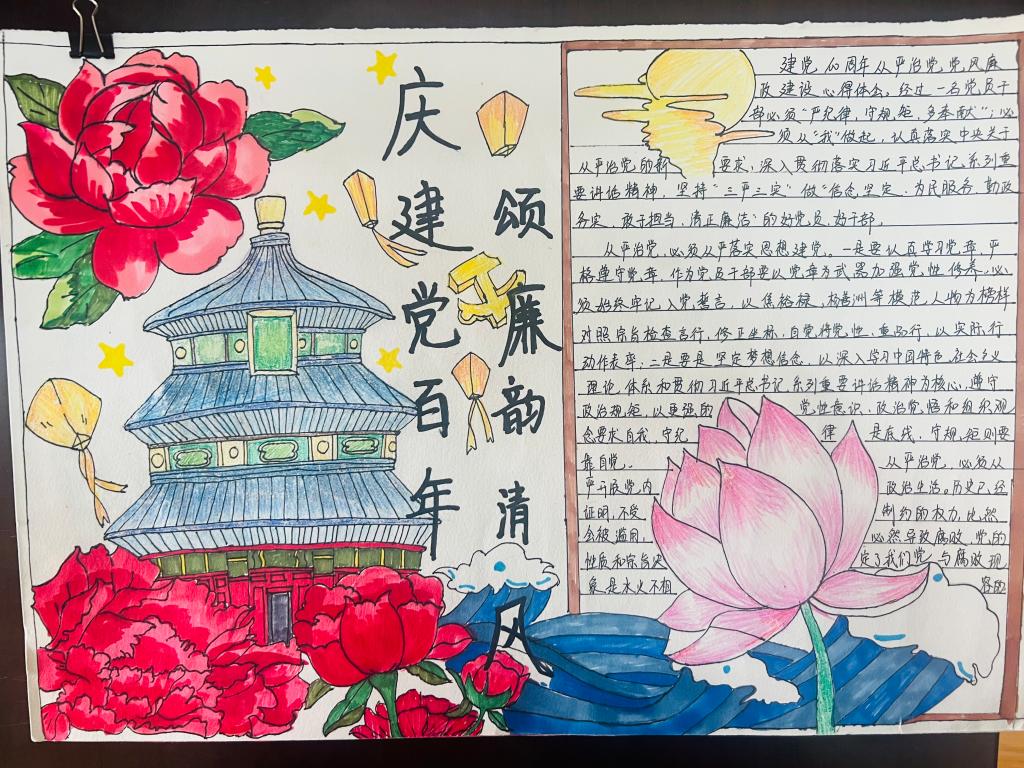 庆建党百年
颂廉韵清风
建党100周年从严治党,党风廉
政建设心得体会。经过一名党员干
部必须“严纪律,守规矩,多奉献”;必
须从“我”做起,认真落实中央关于
从严治党的新 要求,深入贯彻落实习近平总书记系列重
要讲话精神,坚持“三严三实”做“信念坚定、为民服务、勤政
务实、敢于担当、清正廉洁”的好党员、好干部。
从严治党,必须从严落实思想建党。一是要认真学习党章,严
格遵守党章,作为党员干部要以党章为武器加强党性修养,必
须始终牢记入党誓言,以焦裕禄、杨善洲等模范人物为榜样
对照宗旨检查言行,修正坐标,自觉将党性、重品行,以实际行
动作表率;二是要是坚定梦想信念,以深入学习中国特色社会主义
理论体系和贯彻习近平总书记系列重要讲话精神为核心,遵守
政治规矩,以更强的 党性意识、政治觉悟和组织观
念要求自我,守纪 律 是底线,守规矩则要
靠自觉。 从严治党,必须从
严开展党内 政治生活。历史已经
证明,不受 制约的权力,必然
会被滥用, 必然导致腐败,党的
性质和宗旨决 定了我们党与腐败现
象是水火不相 容的